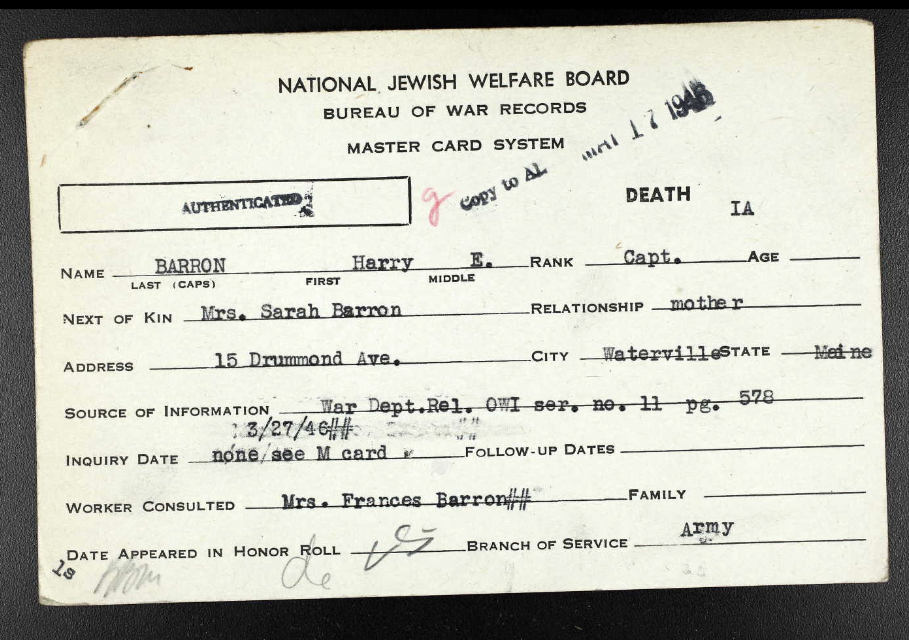 NATIONAL JEWISH WELFARE BOARD
BUREAU OF WAR RECORDS
MASTER CARD SYSTEM
MAY 17 1946
Copy to AL
AUTHENTICATED
g
DEATH
IA
NAME BARRON Harry E. RANK Capt. AGE
LAST (CAPS) FIRST MIDDLE
NEXT OF KIN Mrs. Sarah Barron RELATIONSHIP mother
ADDRESS 15 Drummond Ave. CITY Waterville STATE Maine
SOURCE OF INFORMATION War Dept.Rel. OWI ser. no. 11 pg. 578
3/27/46##
INQUIRY DATE none/see M card FOLLOW-UP DATES
WORKER CONSULTED Mrs. Frances Barron## FAMILY
DATE APPEARED IN HONOR ROLL BRANCH OF SERVICE Army
ls
de